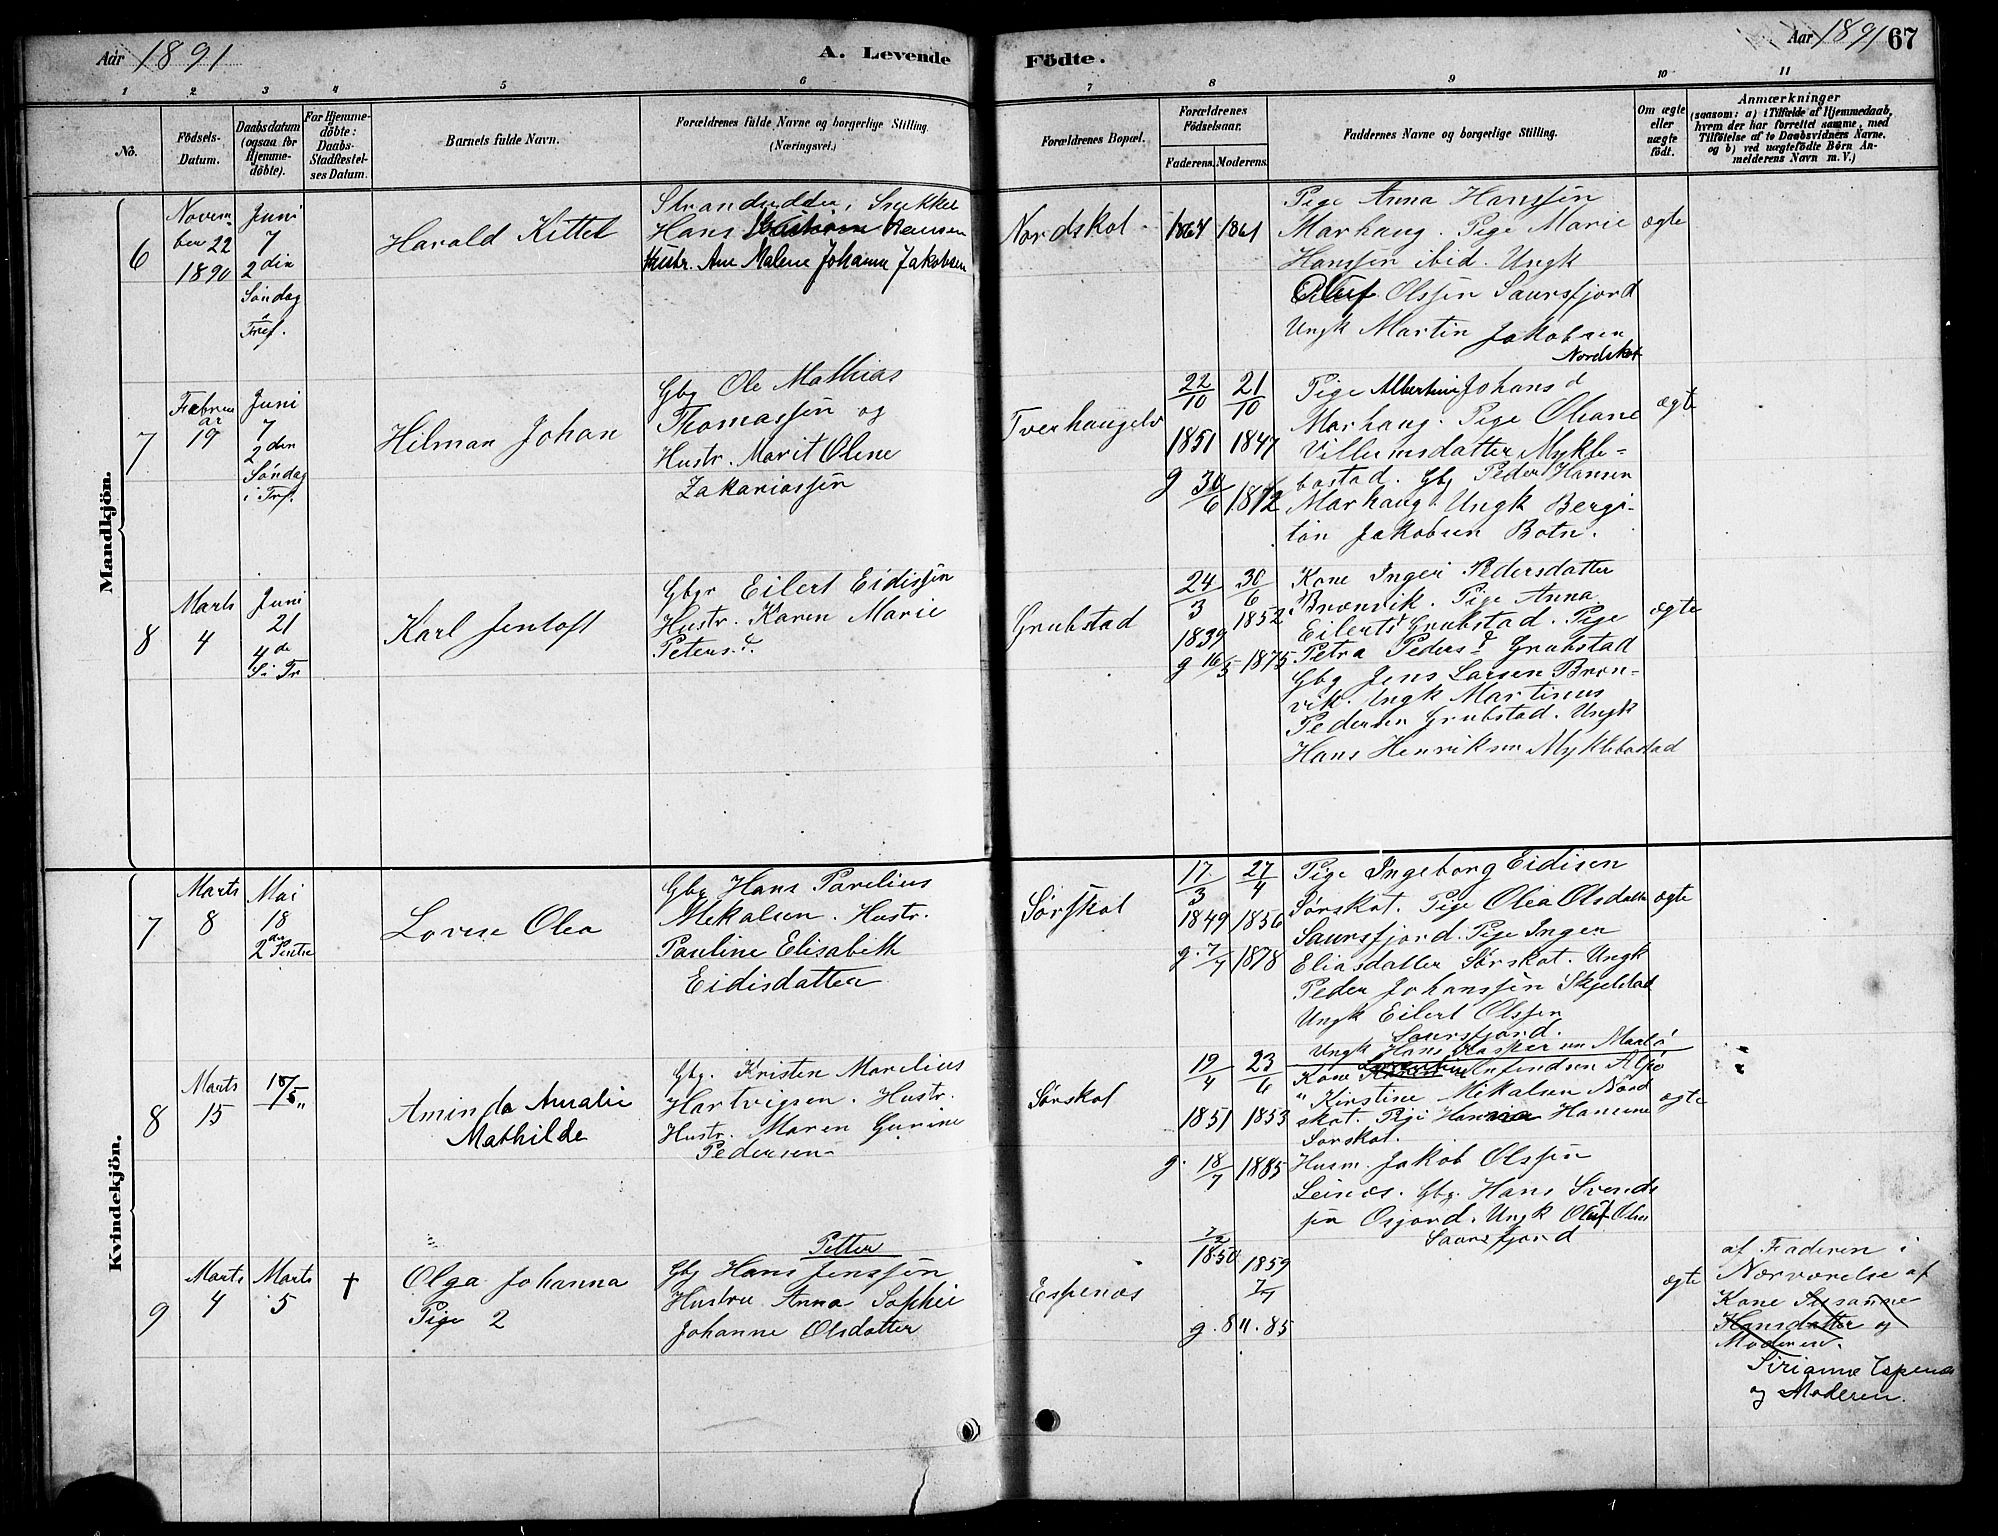 Aar 1891
A. Levende
Födte.
Aar 1891
67
1 2 3 4 5 6 7 8 9 10 11
No.
Födsels-
Datum.
Daabsdatum
(ogsaa for
Hjemme-
döbte).
For Hjemme-
döbte:
Daabs-
Stadfæstel-
ses Datum.
Barnets fulde Navn.
Forældrenes fulde Navne og borgerlige Stilling.
(Næringsvei.)
Forældrenes Bopæl.
Forældrenes
Födselsaar.
Faderens. Moderens.
Faddernes Navne og borgerlige Stilling.
Om ægte
eller
uægte
födt.
Anmærkninger
(saasom: a) i Tilfælde af Hjemmedaab,
hvem der har forrettet samme, med
Tilföielse af to Daabsvidners Navne.
og b) ved uægtefödte Börn An-
melderens Navn m. V.)
Mandkjön.
6
Novem
ber 22
1890
Juni
7
2den
Søndag
i
Tref.
Harald Kittel
Hans Hansen
Hustr. Ane Malene Johanna Jakobsen
Nordskot
1864 1861
Pige Anna Hanssen
Marhaug. Pige Marie
Hanssen ibid. Ungk
Oluf Olssen Saursfjord
Ungk Martin Jakobsen
Nordskot
ægte
7
Februar
19
Juni
7
2den
Søndag
i Trf.
Hilman Johan
Gbg Ole Mathias
Thomassen og
Hustr. Marit Olene
Zakariassen
Tverhaugelv
22/10 21/10
1851 1847
g 30/6 1872
Pige Albertine Johans d
Marhaug. Pige Oliane
Villumsdatter Mykle-
bostad. Gbg Peder Hansen
Marhaug. Ungk Bergi-
ton Jakobsen Botn.
ægte
8
Marts
4
Juni
21
4de
S. i Tr
Karl Jentoft
Gbgr Eilert Eidissen
Hustr. Karen Marie
Peters d.
Grubstad
24/3 30/6
1839 1852
g 16/5 1875
Kone Inger Pedersdatter
Brænvik. Pige Anna
Eilertsd Grubstad. Pige
Petra Peders d Grubstad
Gbg Jens Larsen Bren-
vik. Ungk Martinus
Pedersen Grubstad. Ungk
Hans Henriksen Myklebostad
ægte
Kvindekjön.
7
Marts
8
Mai
18
2den Pintse
Lovise Olea
Gbg Hans Parelius
Mekalsen. Hustr.
Pauline Elisabeth
Eidisdatter
Sørskot
17/3 27/4
1849 1856
g. 7/7 1878
Pige Ingeborg Eidisen
Sørskot. Pige Olea Olsdatter
Saursfjord. Pige Inger
Eliasdatter Sørskot. Ungk
Peder Johanssen Skjelstad
Ungk Eilert Olssen
Saursfjord.
ægte
8
Marts
15
18/5 "
Aminda Amalie
Mathilde
Gbg. Kristen Marelius
Hartvigsen. Hustr.
Hustr. Maren Gurine
Pedersen
Sørskot
19/4 23/6
1851 1853
g. 18/7 1885
Ungk Hans Kaspersen Maalø
Kone Anfindsen
" Kirstine Mikalsen Nord
skot. Pige Hanna Hansene
Sørskot.
Husm. Jakob Olssen
Leinæs. Gbg. Hans Svends
sen Osjord. Ungk Oluf Olsen
Saursfjord
ægte
9
Marts
4
Marts
5
†
Olga Johanna
Pige 2
Petter
Gbg Hans Jenssen
Hustru Anna Sophie
Johanne Olsdatter
Espenæs
7/2
1850 1859
7/7
g. 8/11. 85
ægte
af Faderen i
Nærværelse af
Kone Susanne
Hansdatter og
Moderen.
Sirianne Espenæs
og Moderen.